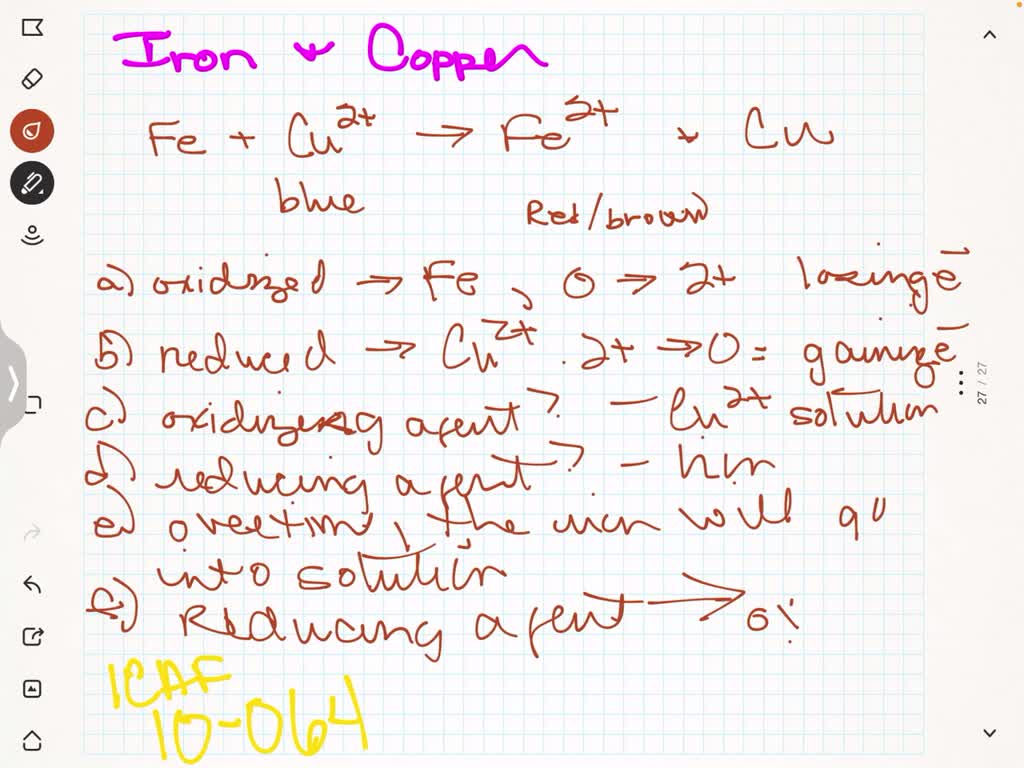 Iron + Copper
Fe + Cu²⁺ → Fe²⁺ + Cu
blue Red/brown
a) oxidized → Fe, 0 → 2+ losing e⁻
b) reduced → Cu²⁺. 2+ → 0 = gaining e⁻
c) oxidizing agent? – Cu²⁺ solution
d) reducing agent? –
e) overtime, the iron will go
into solution
Reducing agent → ox
ICAF
10-064
27 / 27